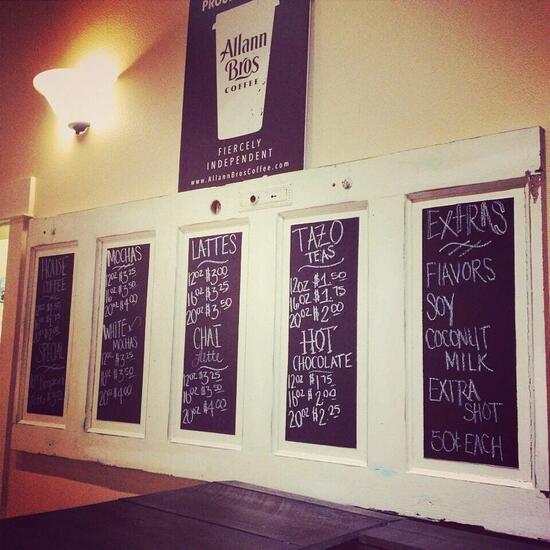 Allann
Bros
COFFEE
FIERCELY
INDEPENDENT
www.AllannBrosCoffee.com
HOUSE
COFFEE
SPECIAL
MOCHAS
12oz $3.25
16oz $3.50
20oz $4.00
WHITE
MOCHAS
12oz $3.25
16oz $3.50
20oz $4.00
LATTES
12oz $3.00
16oz $3.25
20oz $3.50
CHAI
Latte
12oz $3.25
16oz $3.50
20oz $4.00
TAZO
TEAS
12oz $1.50
16oz $1.75
20oz $2.00
HOT
CHOCOLATE
12oz $1.75
16oz $2.00
20oz $2.25
EXTRAS
FLAVORS
SOY
COCONUT
MILK
EXTRA
SHOT
50¢ EACH